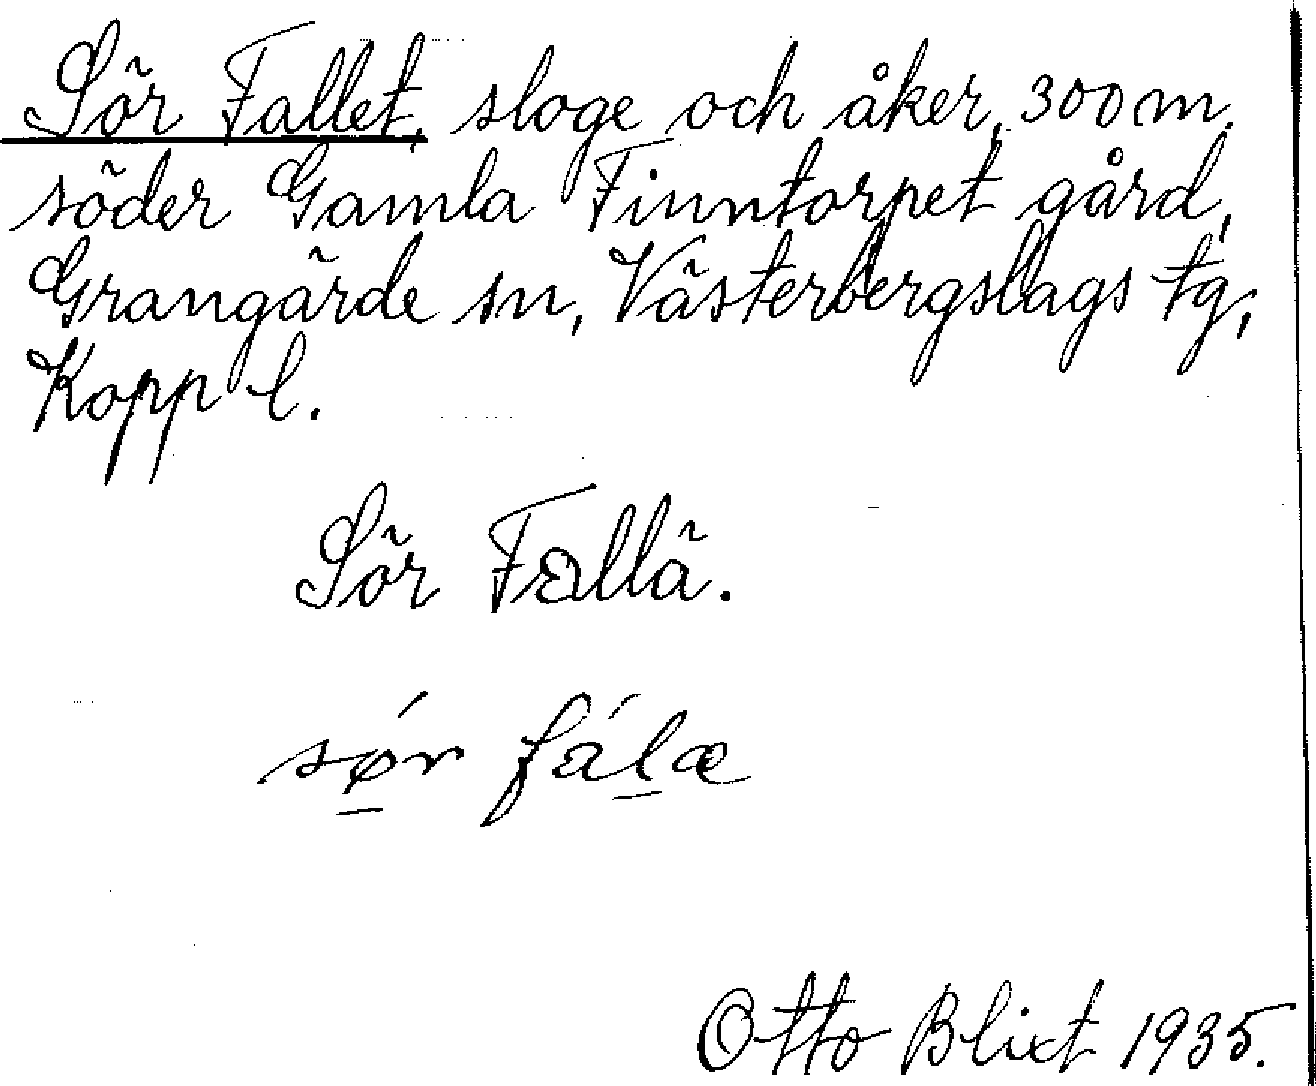 Sör Fallet, sloge och åker, 300 m.
söder Gamla Finntorpet gård,
Grangärde sn, Västerbergslags tg,
Kopp l.
Sör Fallä.
sǿ̱r fáḻæ
Otto Blixt 1935.